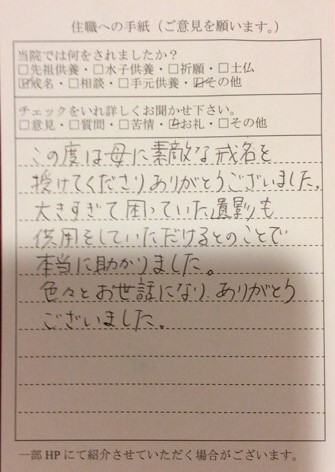 住職への手紙（ご意見を願います。）
当院では何をされましたか？
□先祖供養・□水子供養・□祈願・□土仏
☑戒名・□相談・□手元供養・☑その他
チェックをいれ詳しくお聞かせ下さい。
□意見・□質問・□苦情・☑お礼・□その他
この度は母に素敵な戒名を
授けてくださりありがとうございました。
大きすぎて困っていた遺影も
供用をしていただけるとのことで
本当に助かりました。
色々とお世話になり ありがとう
ございました。
一部HPにて紹介させていただく場合がございます。